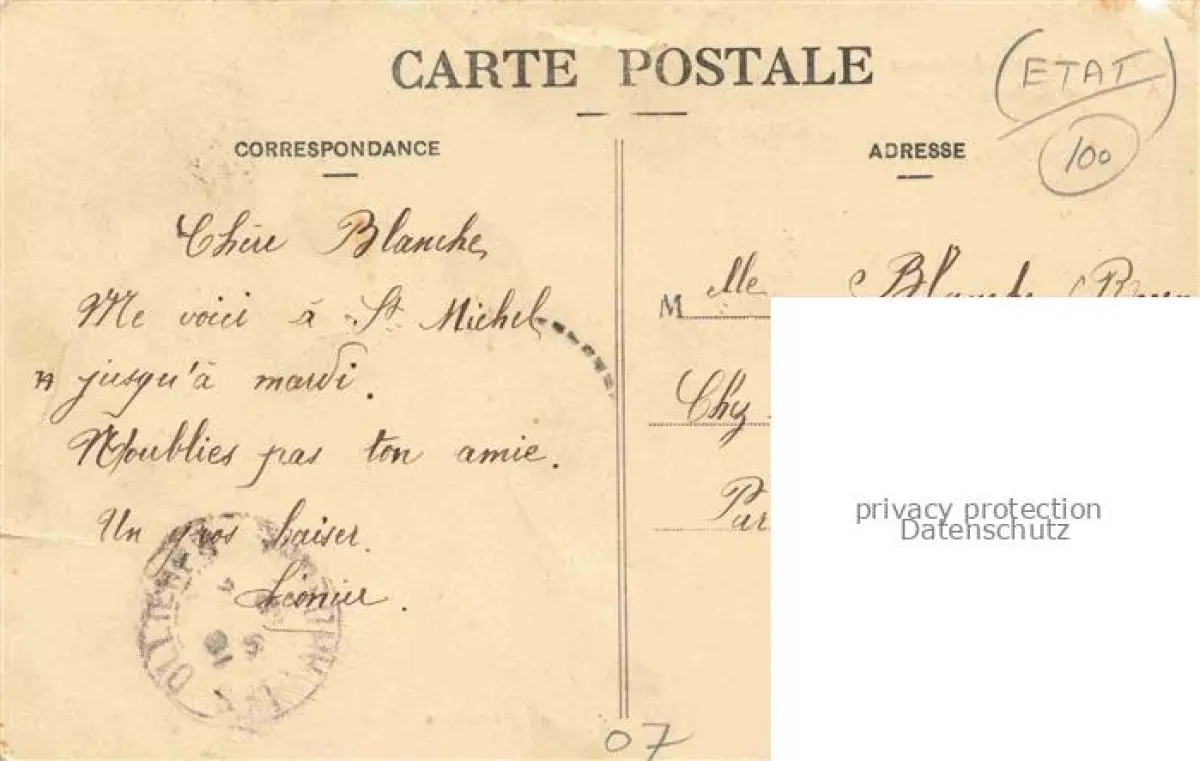 CARTE POSTALE
(ETAT)
100
CORRESPONDANCE
Chère Blanche
Me voici à St Michel
jusqu'à mardi.
N'oublies pas ton amie.
Un gros baiser.
ADRESSE
Mlle Blanche
Chez
privacy protection
Datenschutz
07